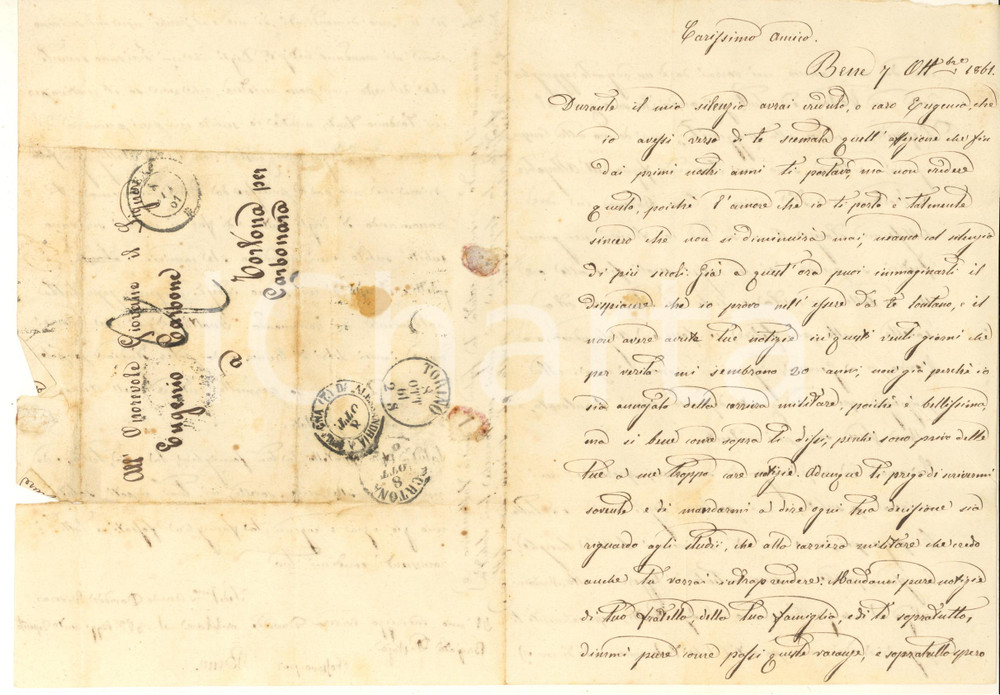 All' Onorevole Giovine Il Signore
Eugenio Carbone
a
Tortona per
Carbonara
TORINO
8
OTT
61
2 S
8
OTT
TORTONA
8
OTT
Carissimo Amico.
Bene 7 Ott.bre 1861.
Durante il mio silenzio avrai creduto, o caro Eugenio, che
io avessi verso di te scemata quell' affezione che fin
dai primi nostri anni ti portavo, ma non credere
questo, poichè l'amore che io ti porto è talmente
sincero che non si diminuirà mai, nemmeno col silenzio
di più secoli. Già a quest'ora puoi immaginarti il
dispiacere che io provo nell'essere da te lontano, e il
non avere avute tue notizie in questi venti giorni che
per verità mi sembrano 20 anni, non già perchè io
sia annojato della carriera militare, poichè è bellissima,
ma si bene come sopra ti dissi, perchè sono privo delle
tue a me troppo care notizie. Adunque ti prego di scrivermi
sovente e di mandarmi a dire ogni tua decisione sia
riguardo agli studii, che alla carriera militare che credo
anche tu vorrai intraprendere: Mandami pure notizie
di tuo fratello, della tua famiglia, e di te sopratutto,
dimmi pure come passi queste vacanze, e sopratutto spero
Charta